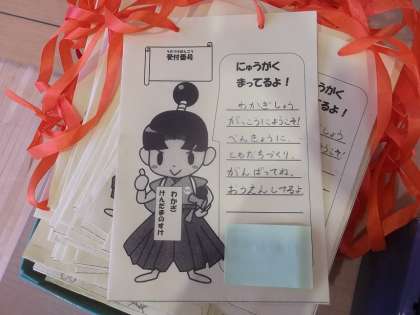 うけつけばんごう
受付番号
にゅうがく
まってるよ!
わかぎしょう
がっこうにようこそ!
べんきょうに、
ともだちづくり、
がんばってね。
おうえんしてるよ
わかぎ
けんだまのすけ